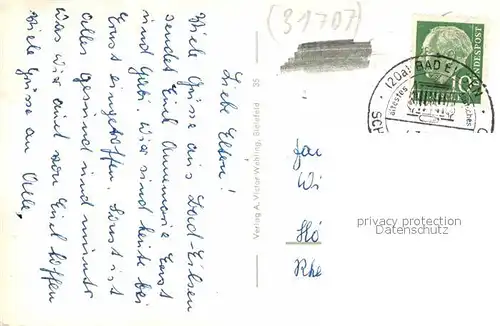 Liebe Eltern!
Viele Grüsse aus Bad-Eilsen
sendet Euch Annemarie Ernst
und Gabi. Wir sind heute bei
Ernst eingetroffen. Sonst ist
alles gesund und munter
was wir auch von Euch hoffen
Viele Grüsse an Alle.
Verlag A. Victor Wehling, Bielefeld 35
(31707)
(20a) BAD EIL
ältestes
10
Wi
Hö
Rhe
privacy protection
Datenschutz